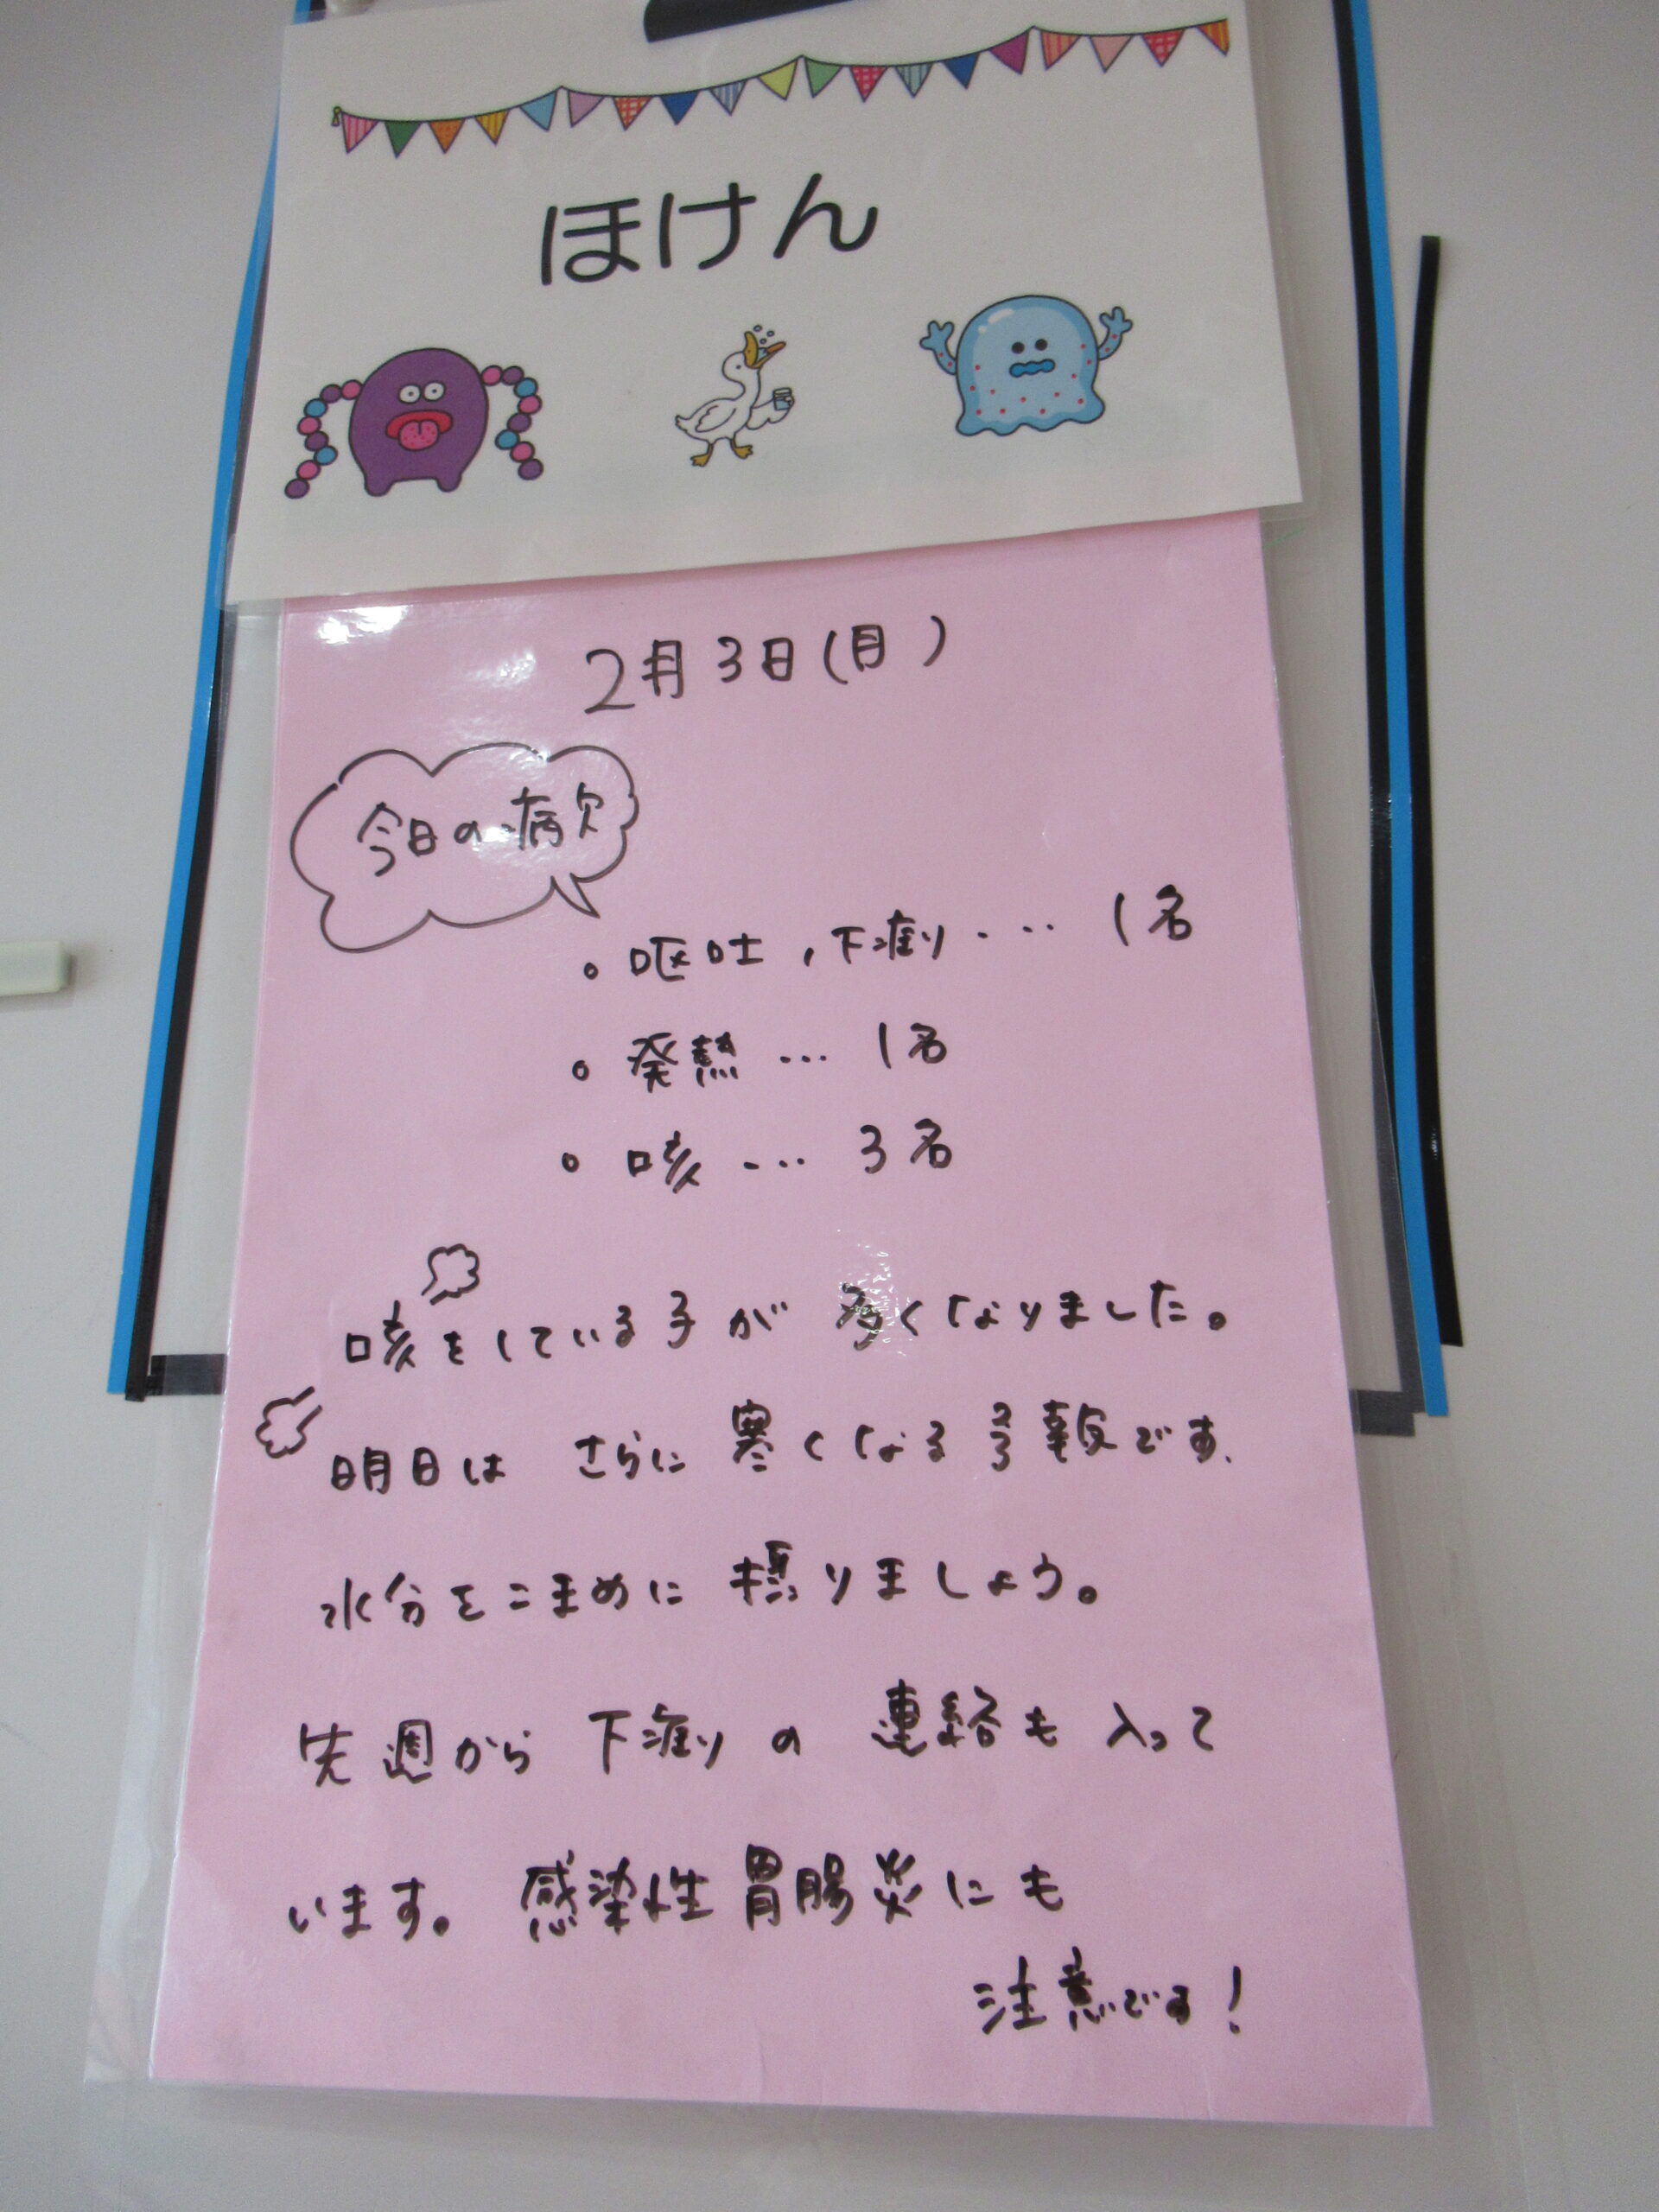 ほけん
2月3日(月)
今日の病欠
。嘔吐、下痢・・・ 1名
。発熱・・・ 1名
。咳・・・ 3名
咳をしている子が 多くなりました。
明日は さらに寒くなる予報です、
水分をこまめに 摂りましょう。
先週から 下痢の 連絡も 入って
います。 感染性胃腸炎にも
注意です!